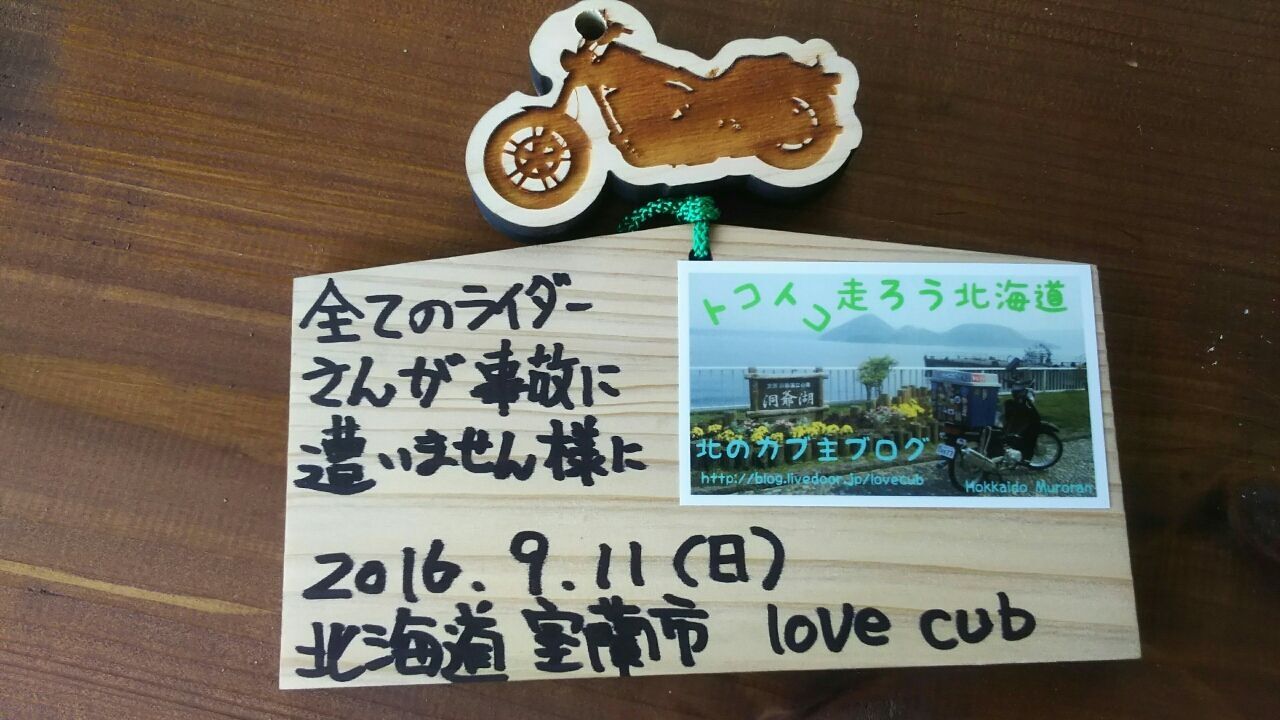 全てのライダー
さんが事故に
遭いません様に
2016.9.11(日)
北海道 室蘭市 love cub
トコトコ走ろう北海道
洞爺湖
北のカブ主ブログ
http://blog.livedoor.jp/lovecub
Hokkaido Muroran